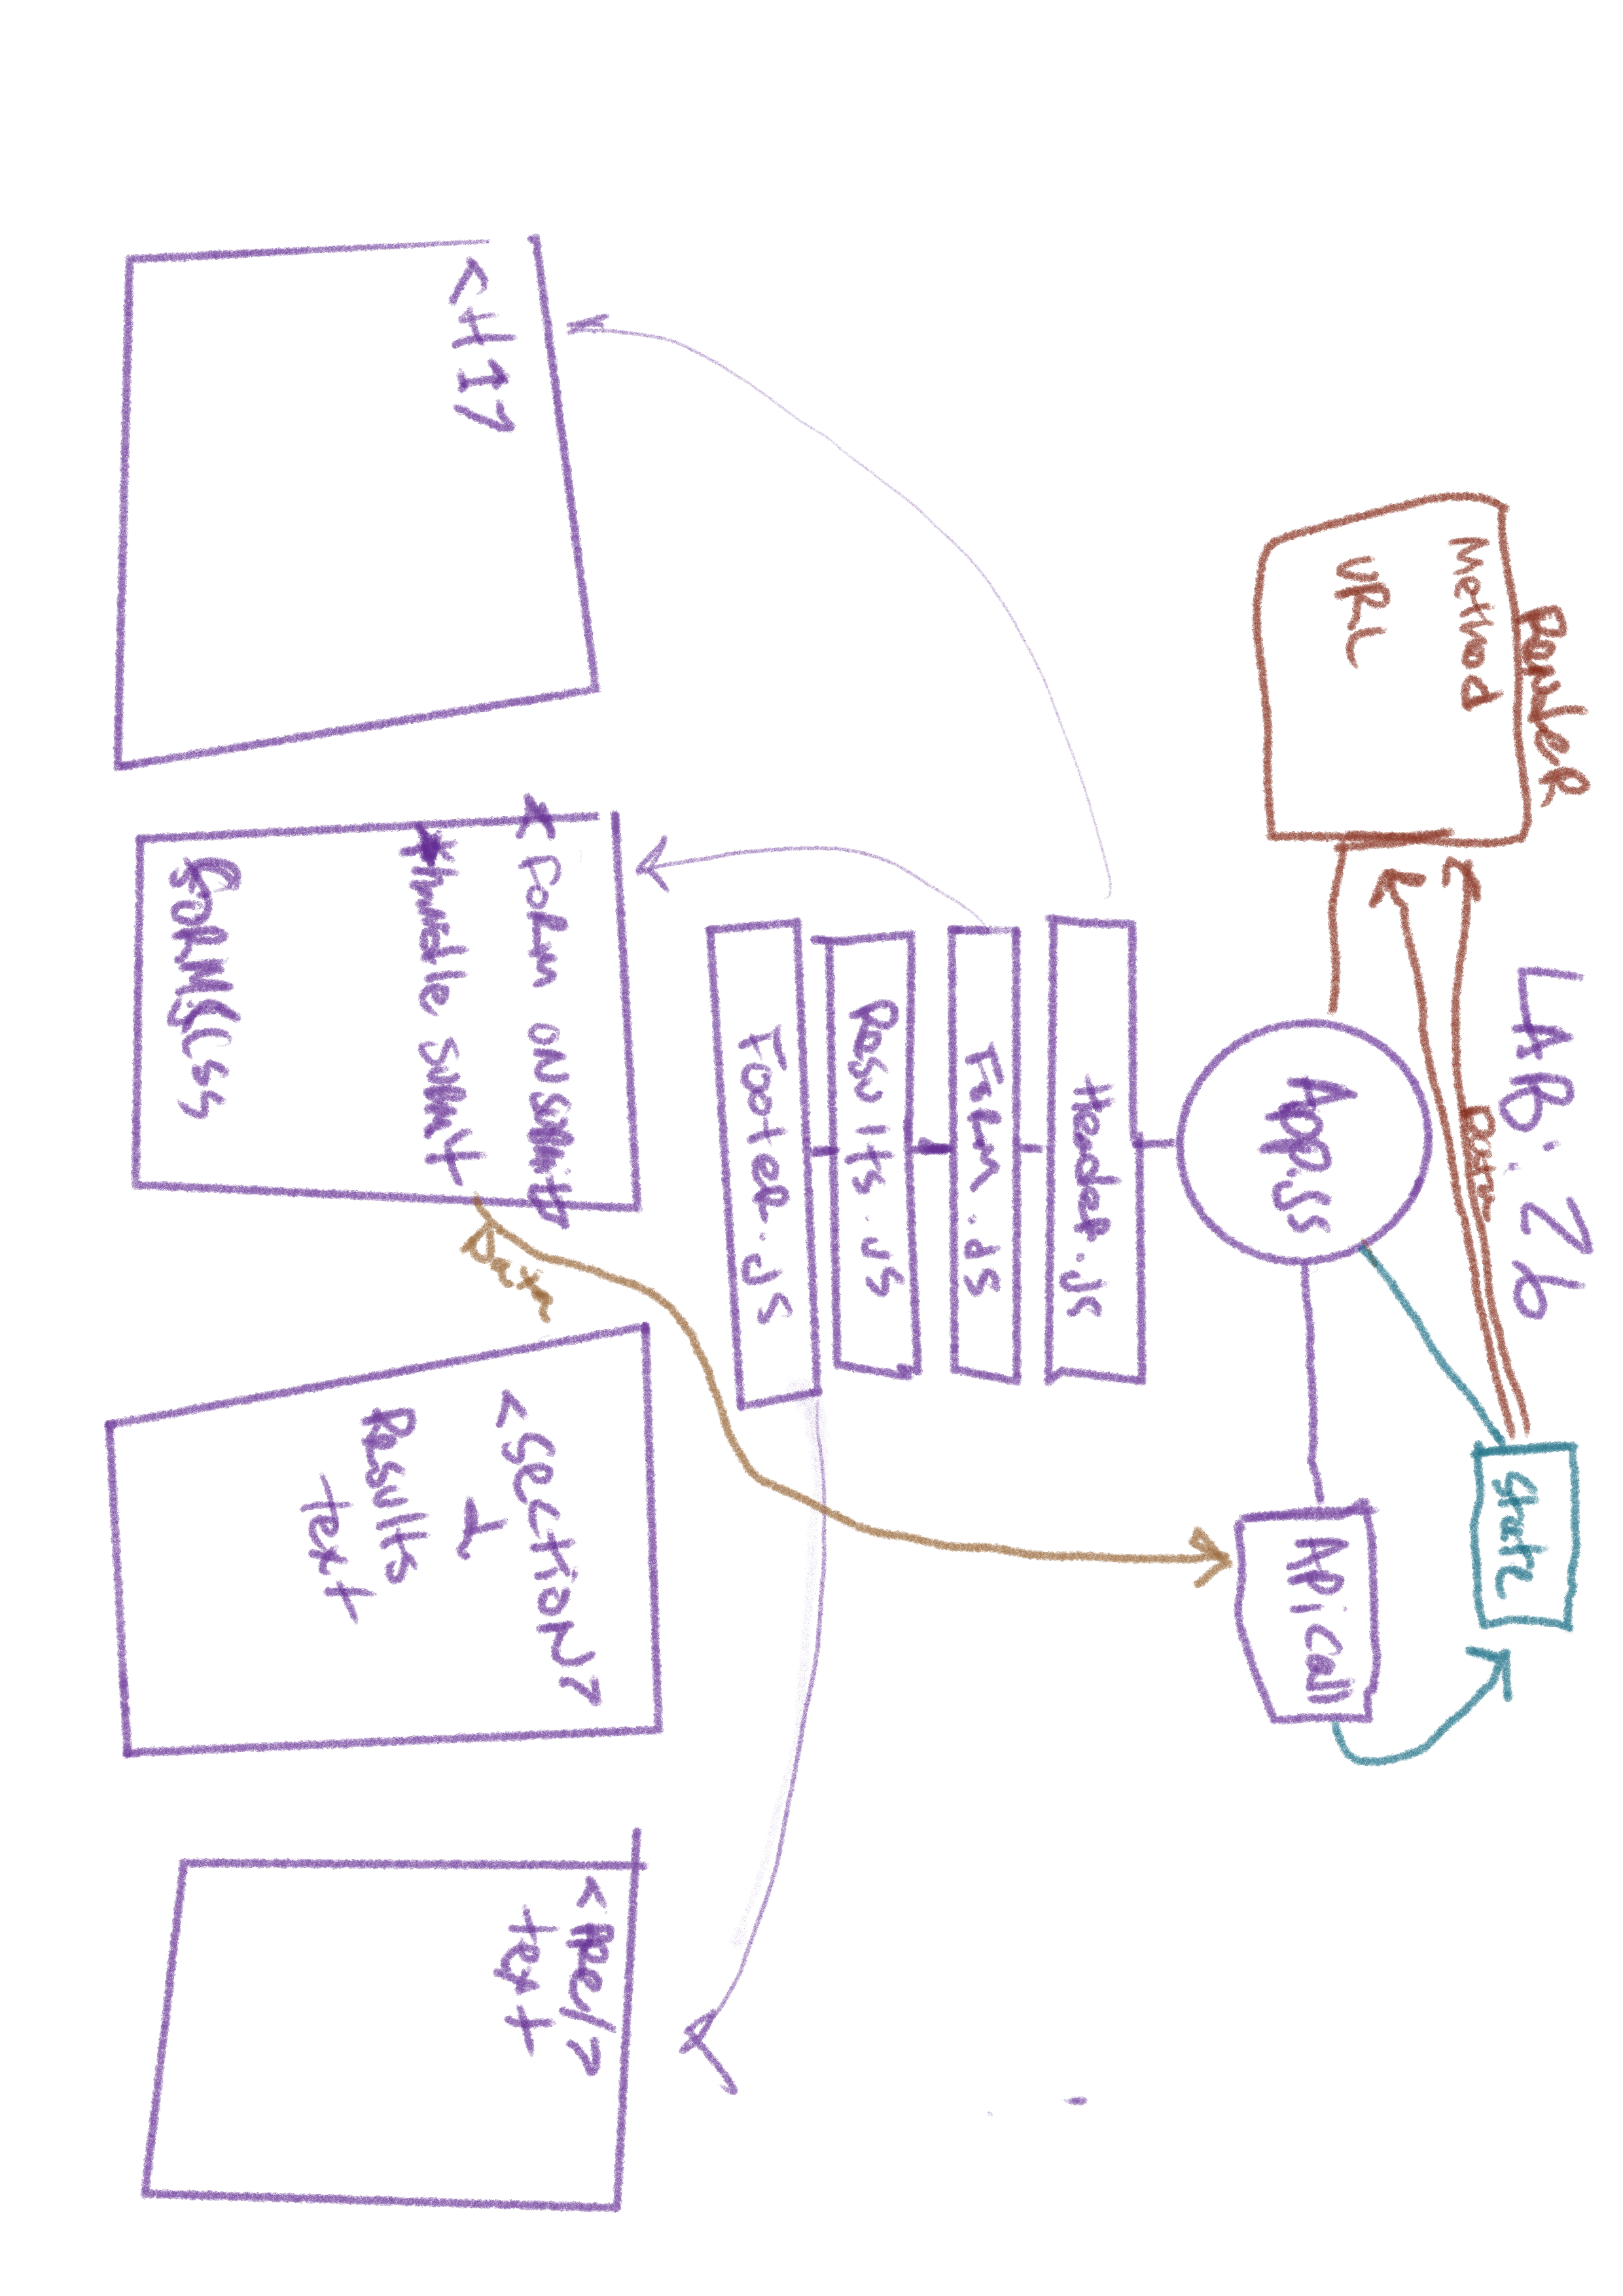 LAB: 26
Render
Method
URL
Data
State
App.js
API Call
Header.js
Form.js
Results.js
Footer.js
<H1>
* Form onSubmit
* Handle submit
Form.css
Data
<section>
1
Results
text
<Pre/>
text